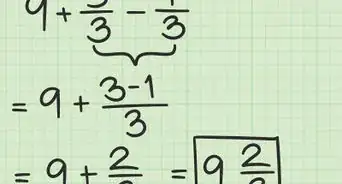 9 + 3/3 − 1/3
= 9 + 3-1/3
= 9 + 2/3 = 9 2/3